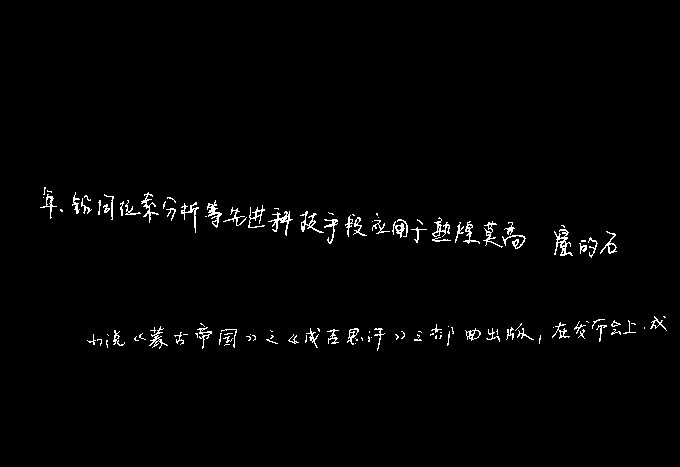 年、铅同位素分析等先进科技手段应用于敦煌莫高窟的石
小说《蒙古帝国》之《成吉思汗》三部曲出版，在发布会上，成